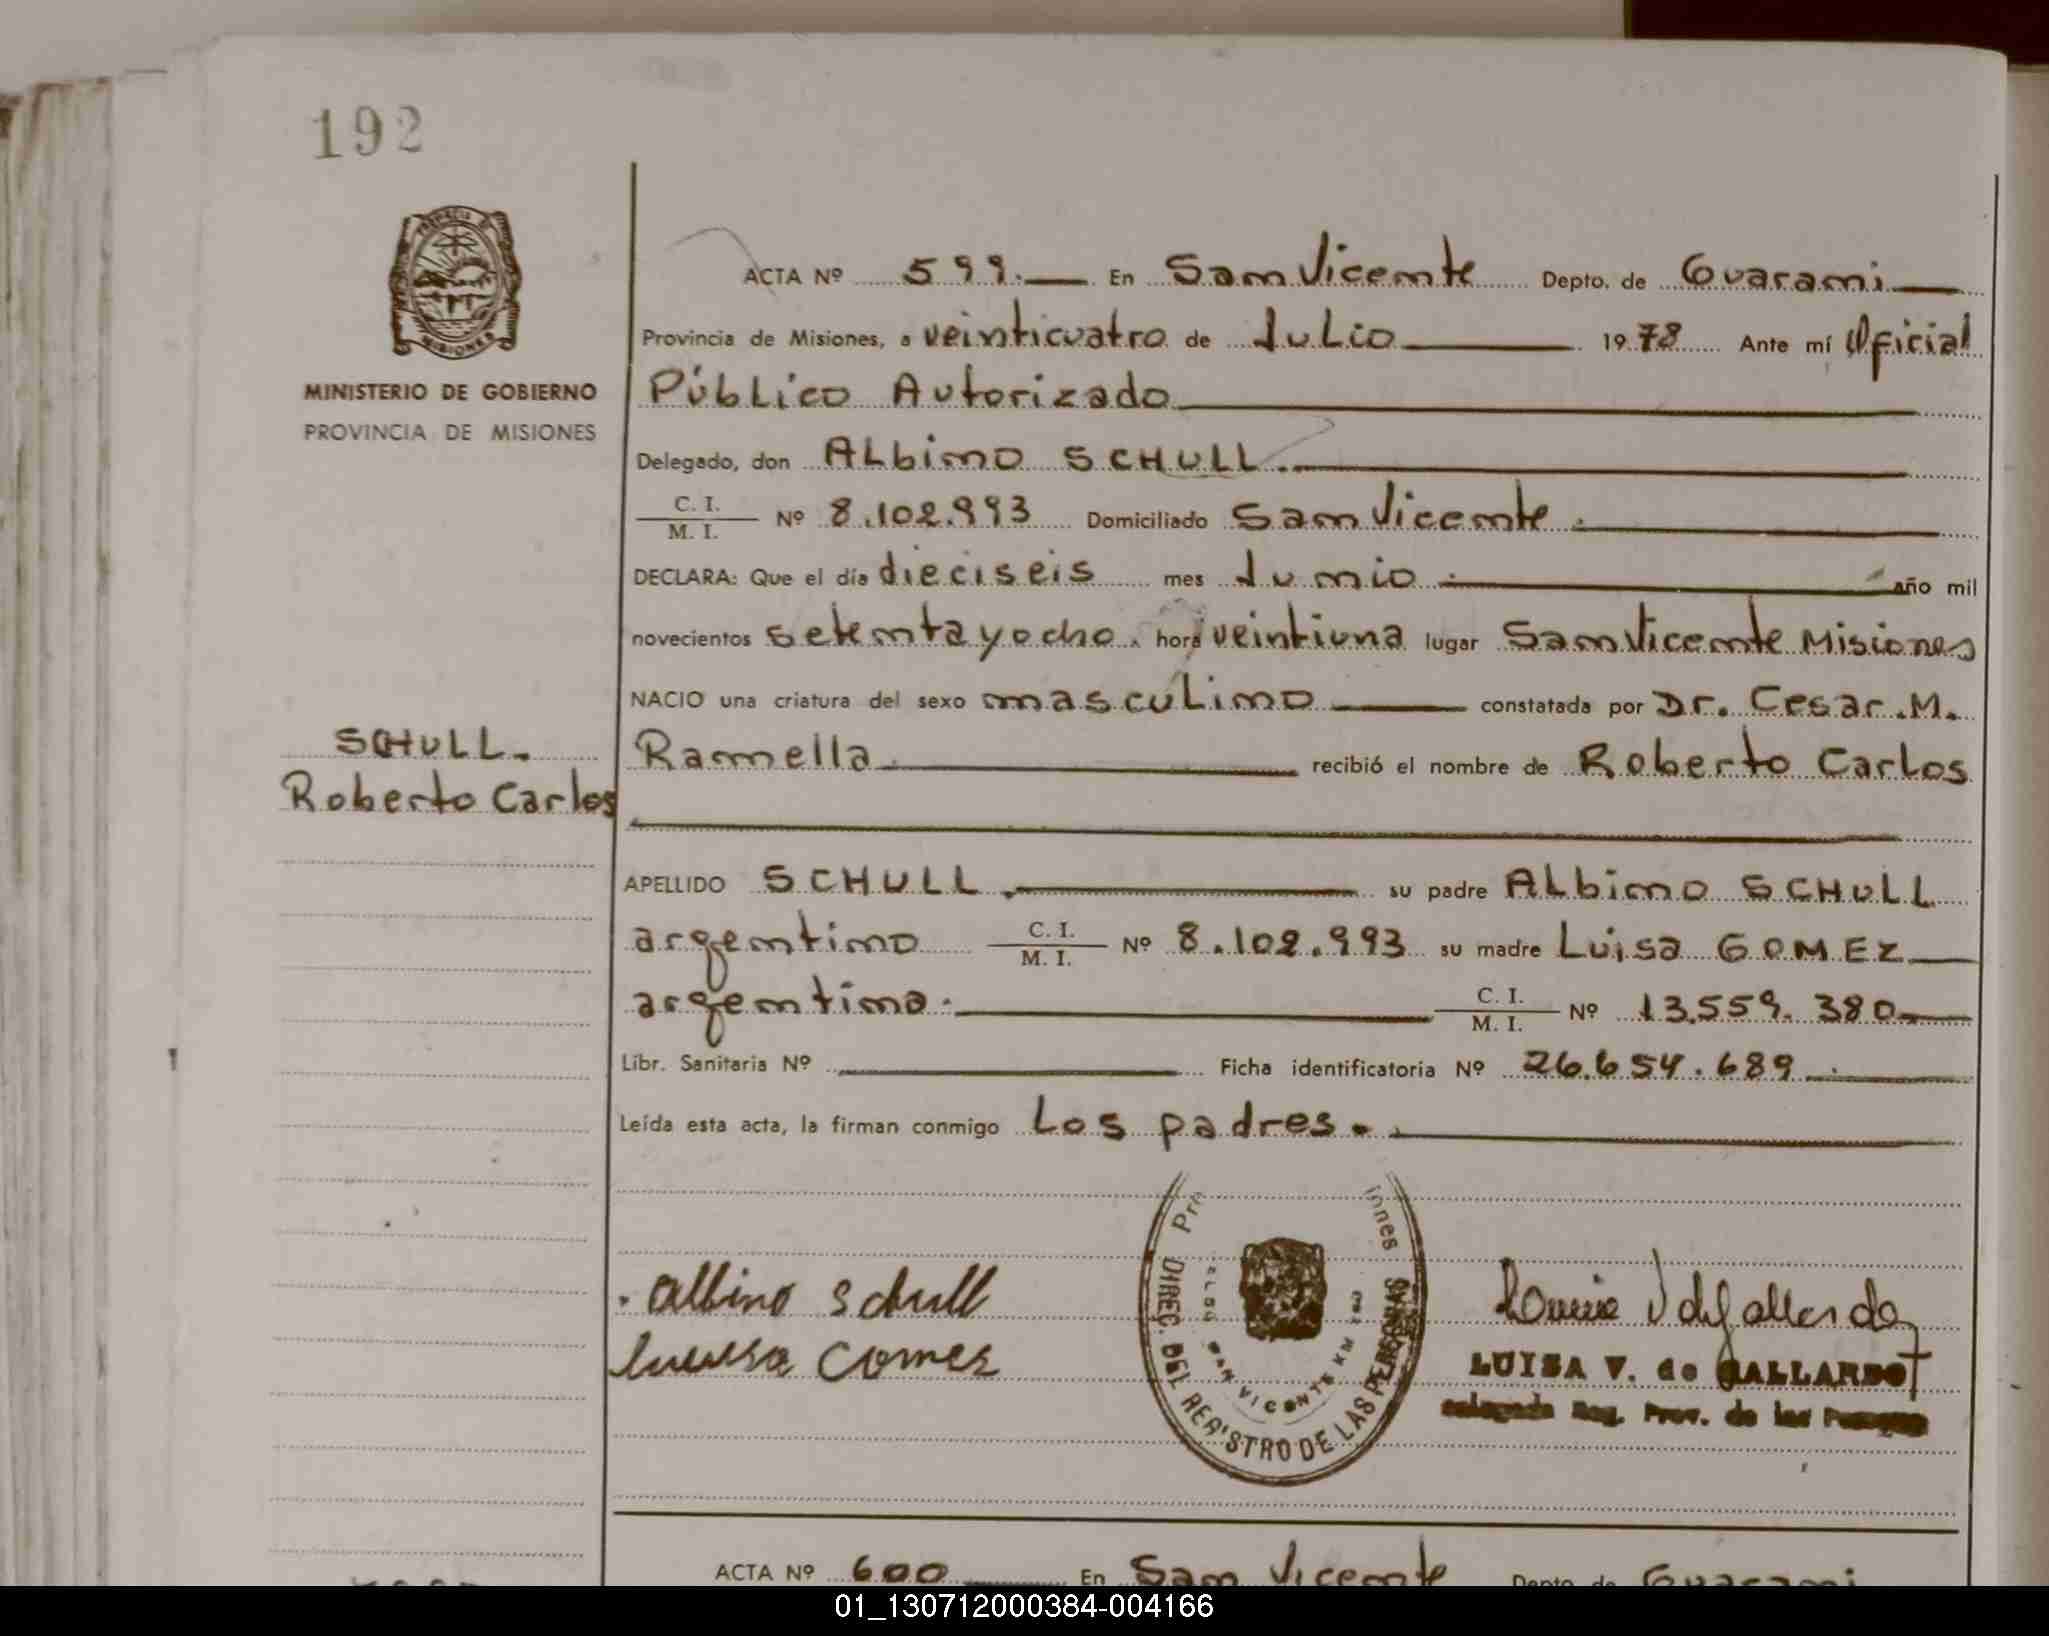 192
MINISTERIO DE GOBIERNO
PROVINCIA DE MISIONES
ACTA Nº 599. En San Vicente Depto. de Guarani
Provincia de Misiones, a veinticuatro de Julio 1978 Ante mí Oficial
Público Autorizado
Delegado, don ALbino SCHULL.
C. I.
M. I. Nº 8.102.993 Domiciliado San Vicente.
DECLARA: Que el día dieciseis mes Junio. año mil
novecientos setenta y ocho. hora veintiuna lugar San Vicente Misiones
NACIO una criatura del sexo mascúLino constatada por Dr. Cesar.M.
Ramella. recibió el nombre de Roberto Carlos
SCHULL.
Roberto Carlos
APELLIDO SCHULL. su padre ALbino SCHULL
argentino C. I.
M. I. Nº 8.102.993 su madre Luisa GOMEZ
argentina. C. I.
M. I. Nº 13.559.380
Libr. Sanitaria Nº Ficha identificatoria Nº 26.654.689.
Leída esta acta, la firman conmigo Los padres.
Albino Schull
DIREC. DEL REGISTRO DE LAS PERSONAS
SAN VICENTE KM
LUISA V. de GALLARDO
Delegada Reg. Prov. de las Personas
ACTA Nº 600 En San Vicente Depto. de Guarani
01_130712000384-004166